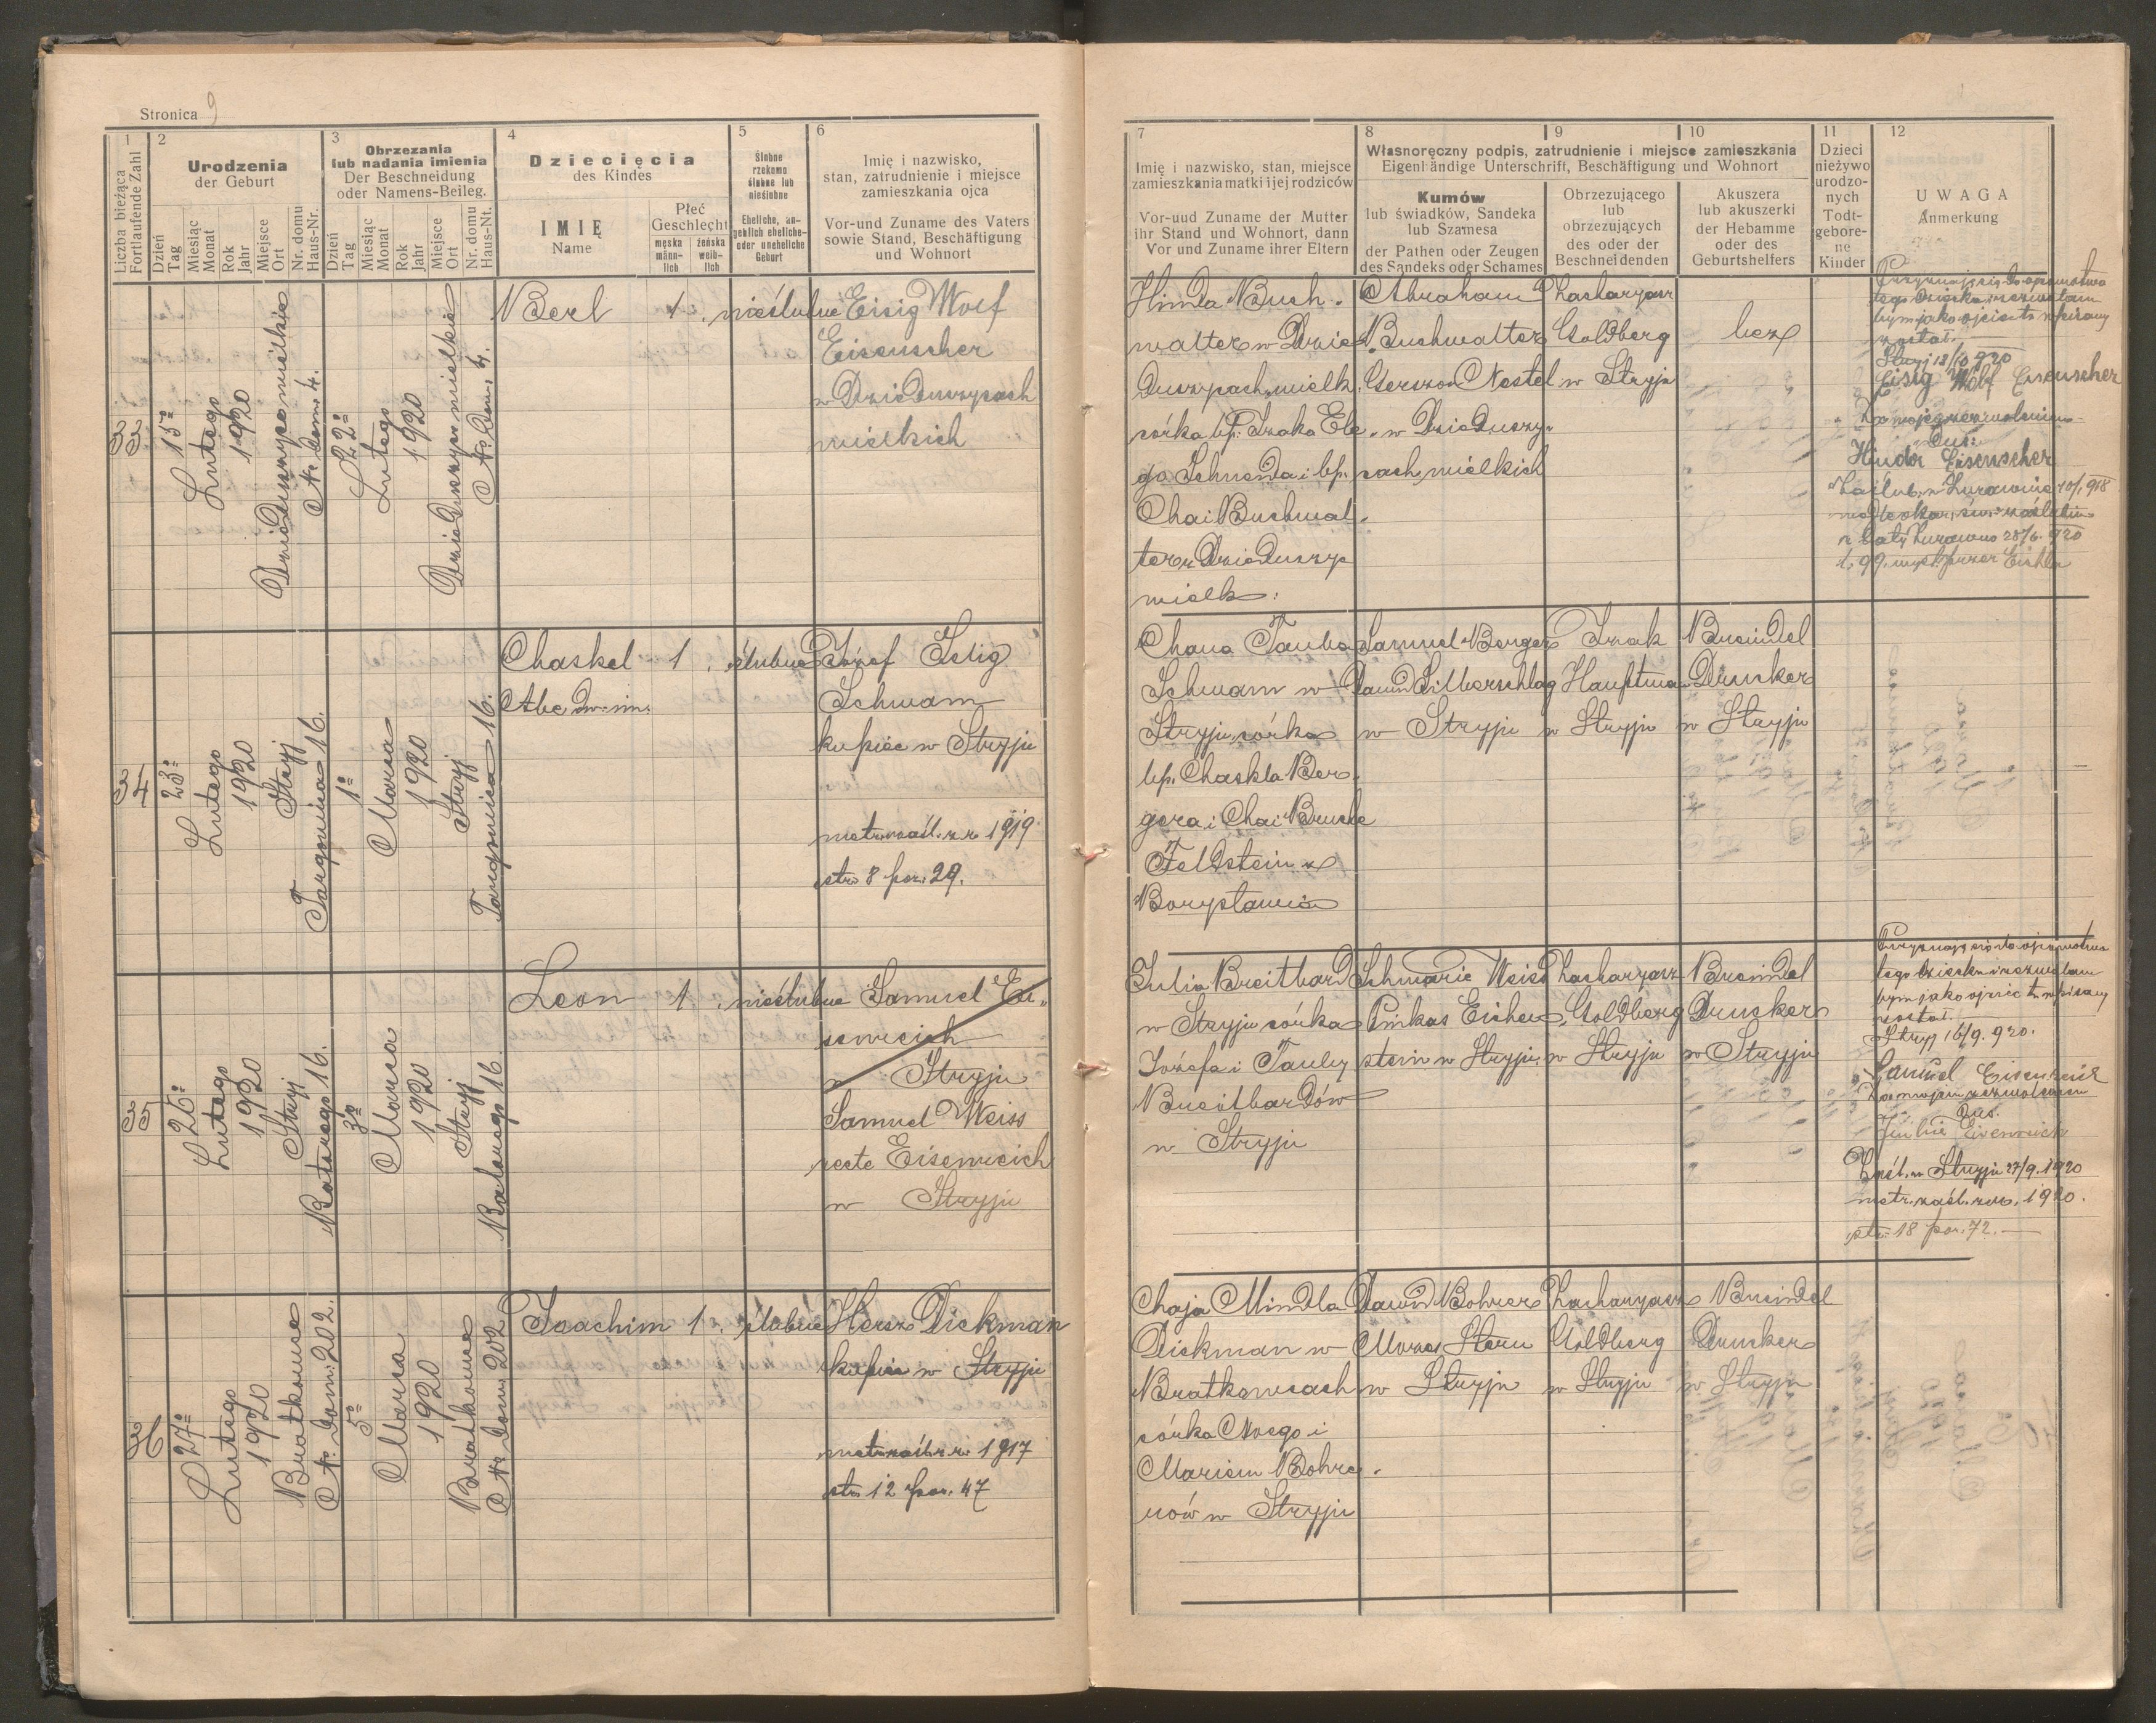 Stronica 9
1
2
3
4
5
6
Liczba bieżąca
Fortlaufende Zahl
Urodzenia
der Geburt
Dzień
Tag
Miesiąc
Monat
Rok
Jahr
Miejsce
Ort
Nr. domu
Haus-Nr.
Obrzezania
lub nadania imienia
Der Beschneidung
oder Namens-Beileg.
Dzień
Tag
Miesiąc
Monat
Rok
Jahr
Miejsce
Ort
Nr. domu
Haus-Nt.
Dziecięcia
des Kindes
IMIĘ
Name
Płeć
Geschlecht
męska
männ-
lich
żeńska
weib-
lich
Ślubne
rzekomo
ślubne lub
nieślubne
Eheliche, an-
geblich eheliche-
oder uneheliche
Geburt
Imię i nazwisko,
stan, zatrudnienie i miejsce
zamieszkania ojca
Vor-und Zuname des Vaters
sowie Stand, Beschäftigung
und Wohnort
33
15
Lutego
1920
Dzieduszyce wielkie
Nr. dom. 4.
22
Lutego
1920
Dzieduszyce wielkie
Nr. dom. 4.
Berl
1
nieślubne
Eisig Wolf
Eisenscher
w Dzieduszycach
wielkich
34
23
Lutego
1920
Stryj
Targowica 16.
1
Marca
1920
Stryj
Targowica 16.
Chaskel
Abe dw. im.
1
ślubne
Józef Selig
Schwam
kupiec w Stryju
metr. zaśl. z r. 1919
str. 8 poz. 29.
35
25
Lutego
1920
Stryj
Batorego 16.
3
Marca
1920
Stryj
Batorego 16
Leon
1
nieślubne
Samuel Ei-
senreich
w Stryju
Samuel Weiss
recte Eisenreich
w Stryju
36
27
Lutego
1920
Bratkowce
Nr. dom. 202.
5
Marca
1920
Bratkowce
Nr. dom. 202
Joachim
1
ślubne
Hersz Dickman
kupiec w Stryju
metr. zaśl. z r. 1917
str. 12 poz. 47
7
8
9
10
11
12
Imię i nazwisko, stan, miejsce
zamieszkania matki i jej rodziców
Vor-uud Zuname der Mutter
ihr Stand und Wohnort, dann
Vor und Zuname ihrer Eltern
Własnoręczny podpis, zatrudnienie i miejsce zamieszkania
Eigenhändige Unterschrift, Beschäftigung und Wohnort
Kumów
lub świadków, Sandeka
lub Szamesa
der Pathen oder Zeugen
des Sandeks oder Schames
Obrzezującego
lub
obrzezujących
des oder der
Beschneidenden
Akuszera
lub akuszerki
der Hebamme
oder des
Geburtshelfers
Dzieci
nieżywo
urodzo-
nych
Todt-
gebore-
ne
Kinder
UWAGA
Anmerkung
Hinda Buch-
walter w Dzie-
duszycach wielk.
córka bp. Izaka Ele-
go Schneida i bp.
Chai Buchwal-
ter z Dzieduszyc
wielk.
Abraham
Buchwalter
Gerszon Nestel
w Dzieduszy-
cach wielkich
Zacharyasz
Goldberg
w Stryju
bez
Przyznaję się do ojcowstwa
tego dziecka i zezwalam
bym jako ojciec tu wpisany
został.
Stryj 18/10 920
Eisig Wolf Eisenscher
Za mojem zezwoleniem
Hinda Eisenscher
Zaślub. w Żurawnie
Chana Tauba
Schwam w
Stryju, córka
bp. Chaskla Ber-
gera i Chai Bruche
Feldstein z
Borysławia
Samuel Berger
Dawid Silberschlag
w Stryju
Izak
Hauptman
w Stryju
Breindel
Drucker
w Stryju
Julia Breitbard
w Stryju córka
Józefa i Tauby
Breitbardów
w Stryju
Schmarie Weiss
Pinkas Eichen-
stein w Stryju
Zacharyasz
Goldberg
w Stryju
Breindel
Drucker
w Stryju
Przyznaję się do ojcowstwa
tego dziecka i zezwalam
bym jako ojciec tu wpisany
został.
Stryj 16/9. 920.
Samuel Eisenreich
Za mojem zezwoleniem
Julie Eisenreich
Zaśl. w Stryju 27/9. 1920
metr. zaśl. z r. 1920.
str. 18 poz. 72.
Chaja Mindla
Dickman w
Bratkowcach
córka Noego i
Mariem Bohre-
rów w Stryju
Dawid Bohrer
Mozes Stern
w Stryju
Zacharyasz
Goldberg
w Stryju
Breindel
Drucker
w Stryju